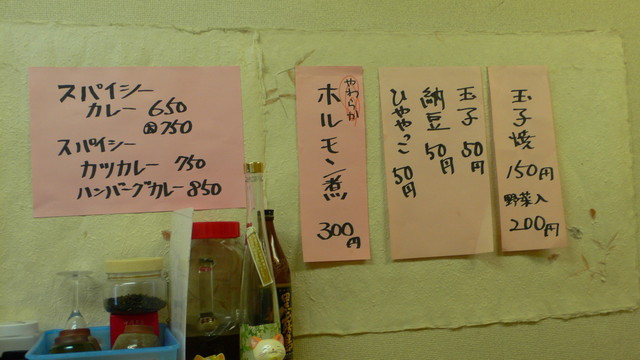 スパイシー
カレー 650
大750
スパイシー
カツカレー 750
ハンバーグカレー 850
やわらか
ホルモン煮
300円
玉子 50円
納豆 50円
ひややっこ 50円
玉子焼
150円
野菜入
200円